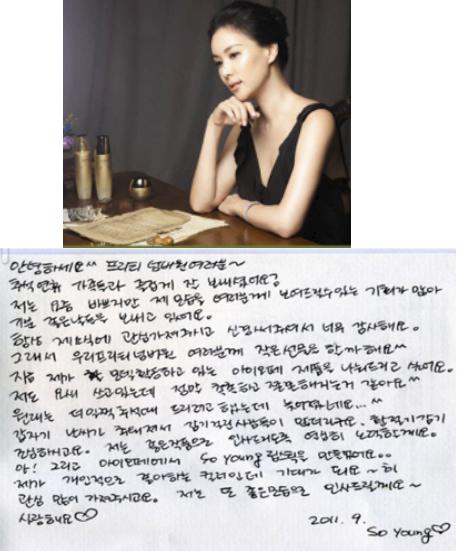 안녕하세요^^ 프리티 넘버원여러분~
추석연휴 가족들과 즐겁게 잘 보내셨어요?
저는 요즘 바쁘지만 제 모습을 여러분께 보여드릴수있는 기회가 많아
기분 좋은날들을 보내고 있어요.
항상 제소식에 관심가져주시고 신경써주셔서 너무 감사해요.
그래서 우리프리티넘버원 여러분께 작은선물을 할까해요^^
지금 제가 모델활동하고 있는 아이오페 제품을 나눠드리고 싶어요.
저도 요새 쓰고있는데 정말 촉촉하고 좋은거같아요^^
원래는 더일찍 추석때 드리려고 했는데 늦어졌네요...^^
갑자기 날씨가 추워져서 감기걸린사람들이 많더라구요. 환절기감기
조심하시고요. 저는 좋은작품으로 인사드리도록 열심히 노력할게요.
아! 그리고 아이오페에서 So Young 립스틱을 만들었어요..
제가 개인적으로 좋아하는 컬러인데 기대가 되요~히
관심 많이 가져주시고요. 저는 또 좋은모습으로 인사드릴게요~
사랑해요♡
2011. 9.
So Young♡